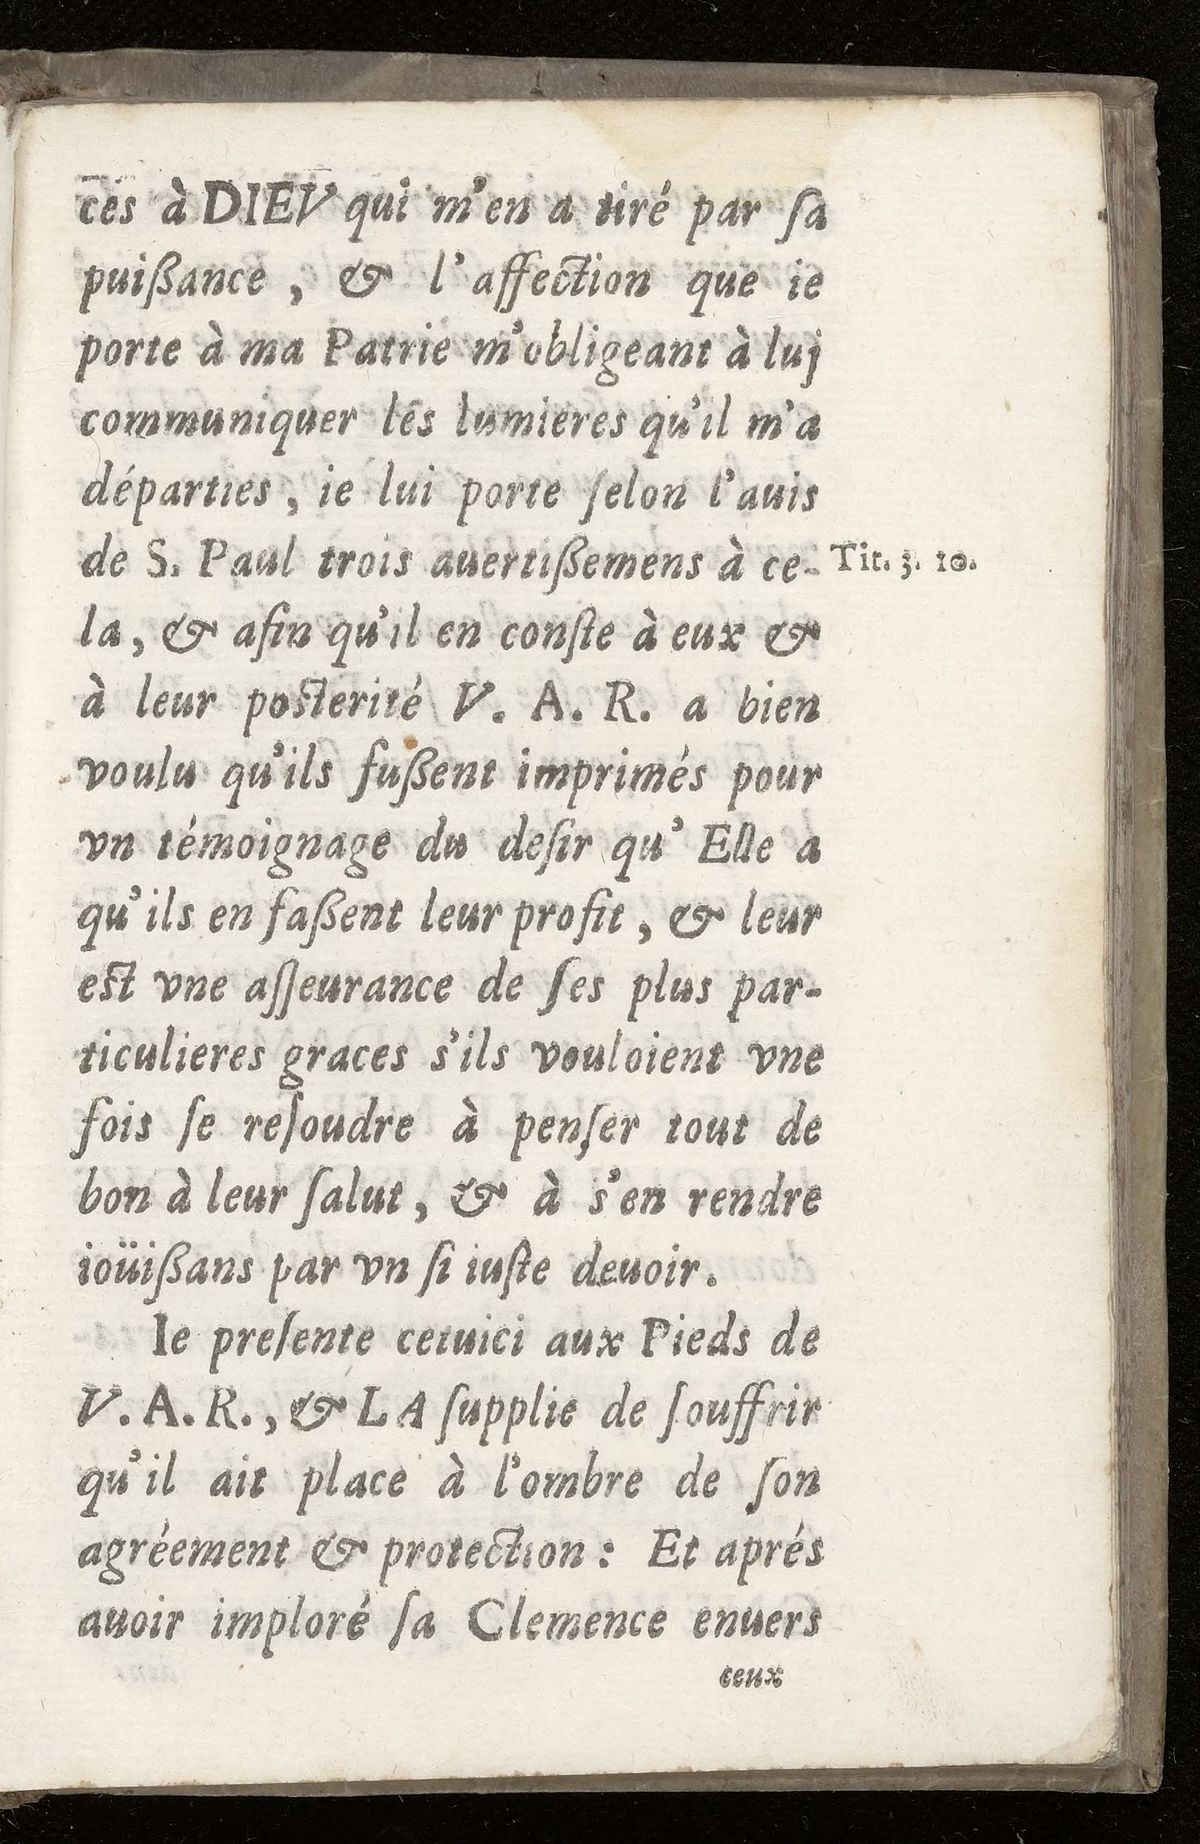 ces à DIEV qui m'en a tiré par ſa
puißance, & l'affection que ie
porte à ma Patrie m'obligeant à luj
communiquer les lumieres qu'il m'a
départies, ie lui porte ſelon l'auis
de S. Paul trois auertißemens à ce- Tit. 3. 10.
la, & afin qu'il en conſte à eux &
à leur posterité V. A. R. a bien
voulu qu'ils fußent imprimés pour
vn témoignage du deſir qu'Elle a
qu'ils en faßent leur profit, & leur
est vne aſſeurance de ſes plus par-
ticulieres graces s'ils vouloient vne
fois ſe reſoudre à penſer tout de
bon à leur ſalut, & à s'en rendre
ioüißans par vn ſi iuſte deuoir.
Ie preſente cetuici aux Pieds de
V. A. R., & LA ſupplie de ſouffrir
qu'il ait place à l'ombre de ſon
agréement & protection: Et aprés
auoir imploré ſa Clemence enuers
ceux